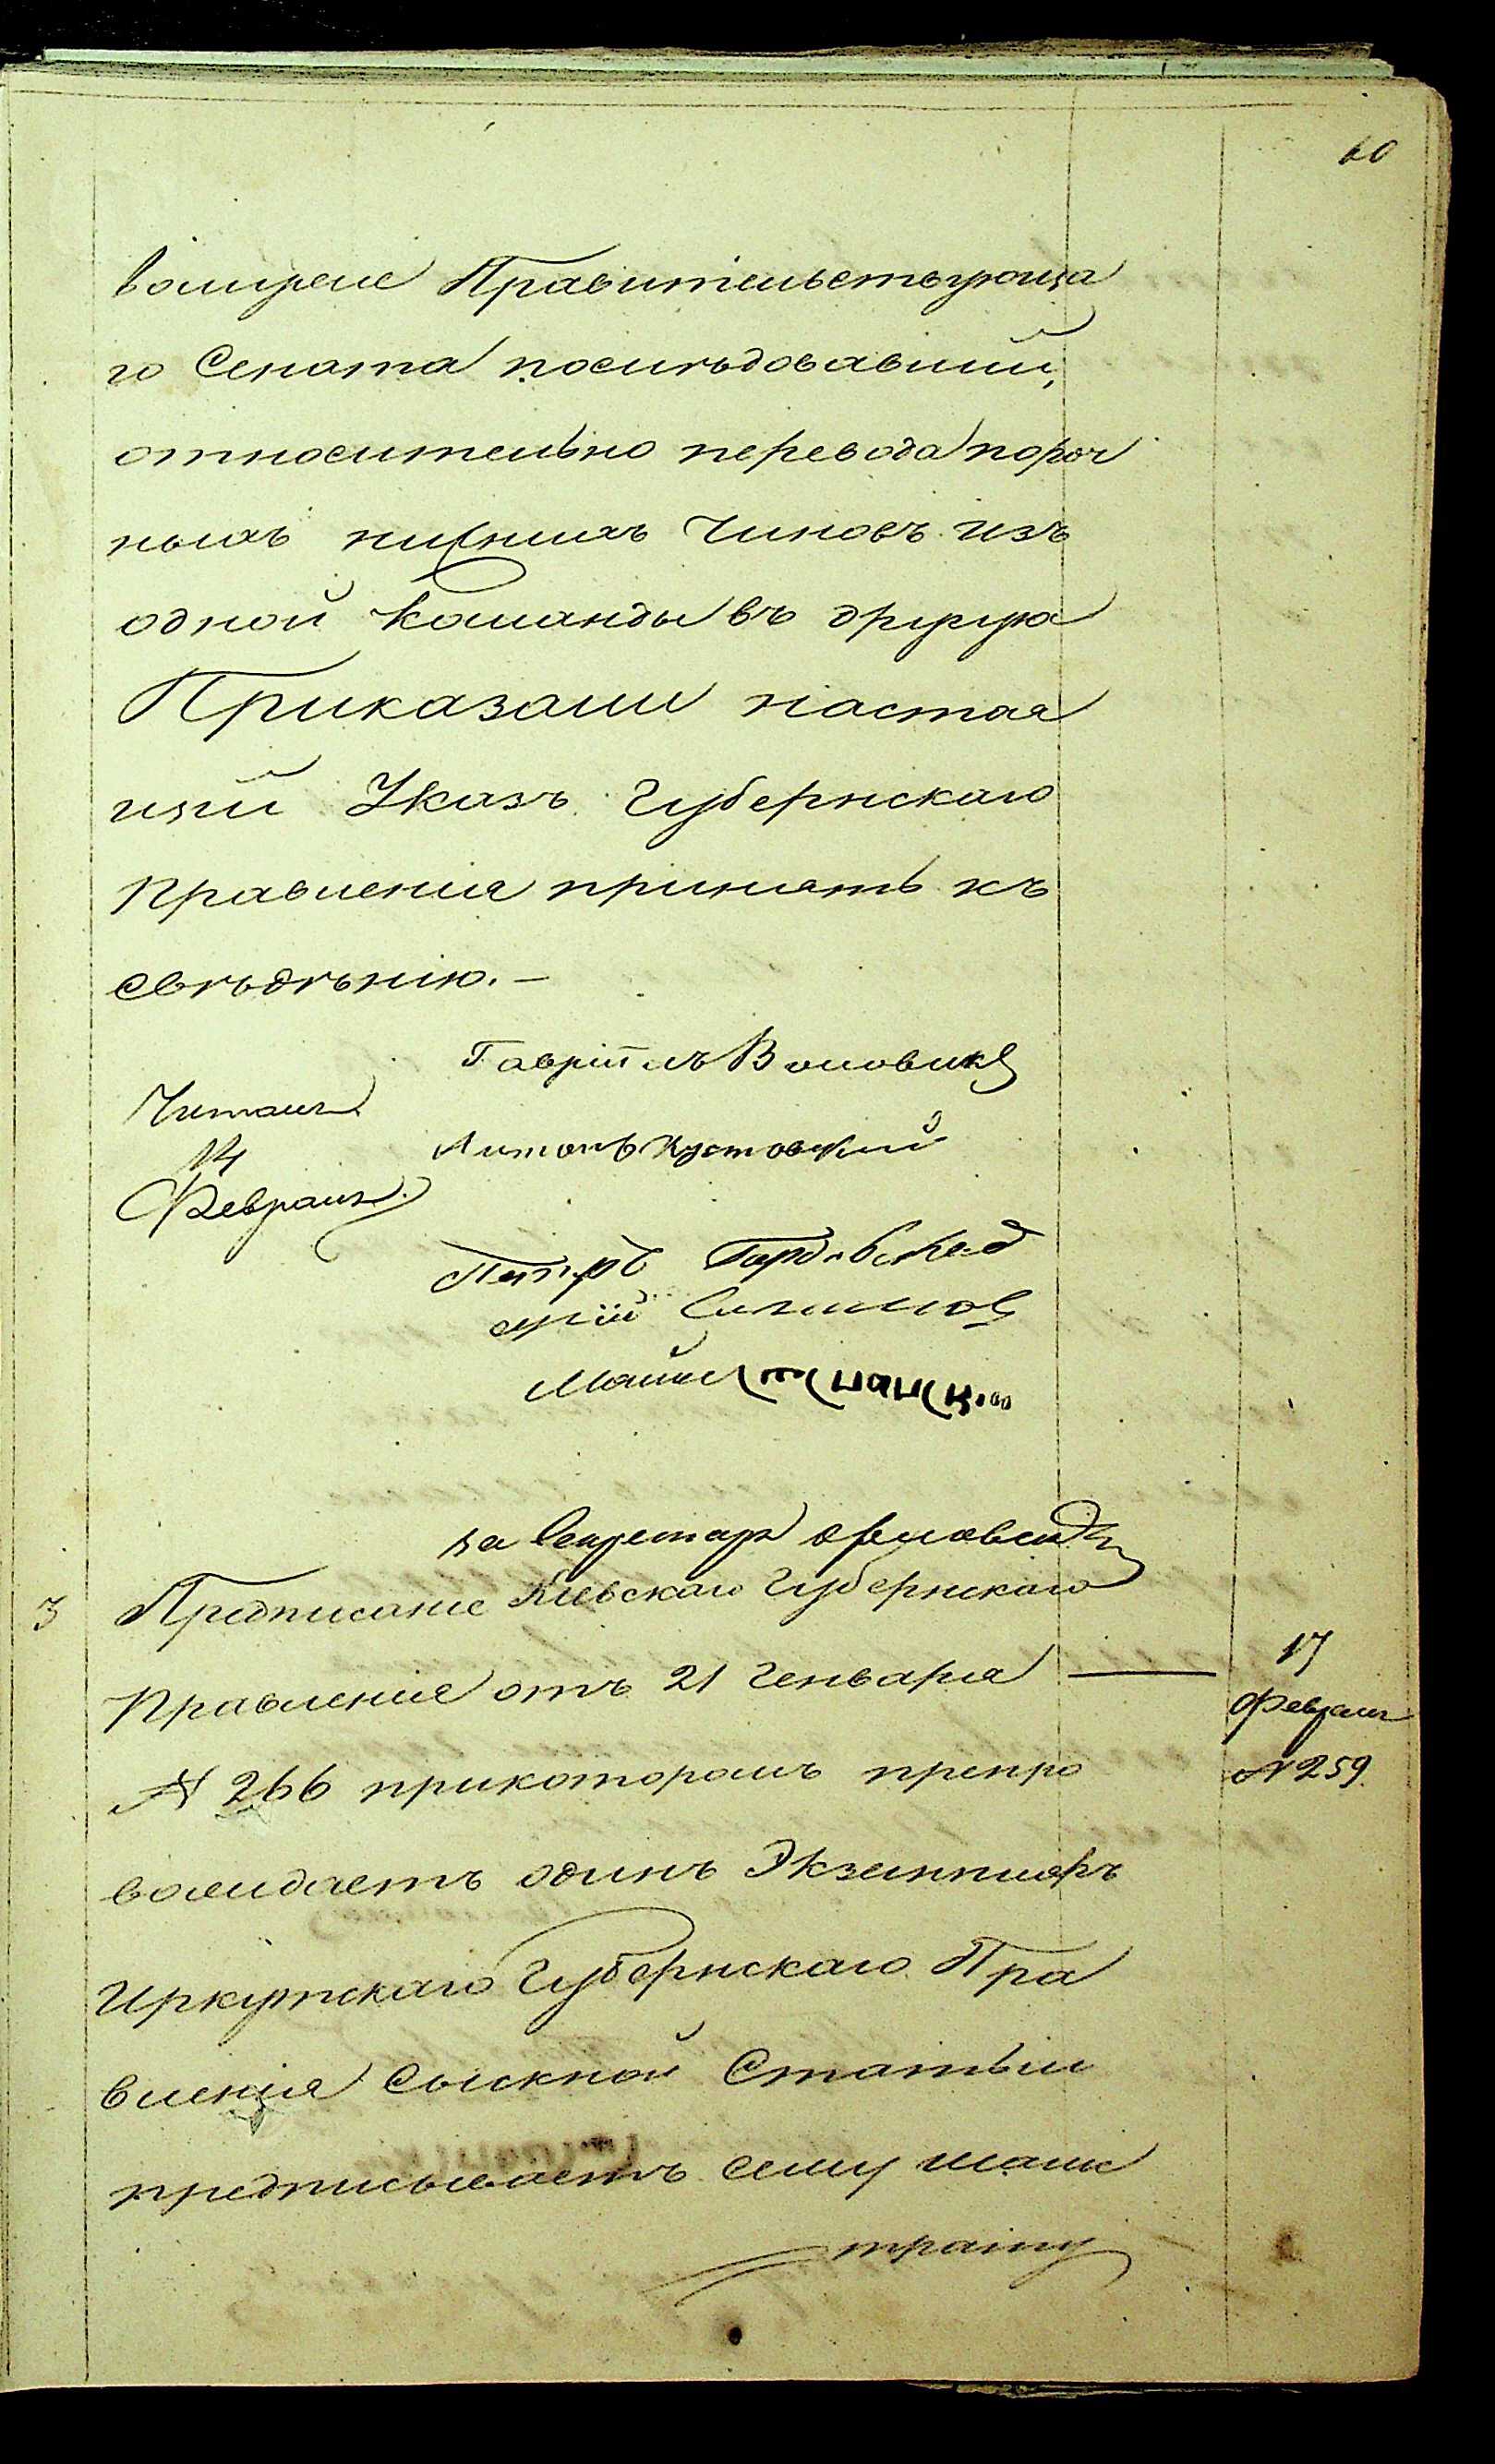 60
Правительствующа
го Сената последовавший,
относительно перевода пороч
ныхъ нижнихъ Чиновъ изъ
одной Команды въ другую
Приказали настоя
щій Указъ Губернскаго
Правленія принять къ
сведенію. —
Гавріилъ Воловик
Читалъ
14
Февраля
Антонъ Кустовскій
Петръ
за Секретаря
3
Предписаніе Киевскаго Губернскаго
Правленія отъ 21 Генваря —
17
Февраля
№ 259.
№ 266 прикоторомъ препро
вождаетъ одинъ Экземпляръ
Иркутскаго Губернскаго Пра
вленія Сыскной Статьи
предписываетъ сему маги
страту